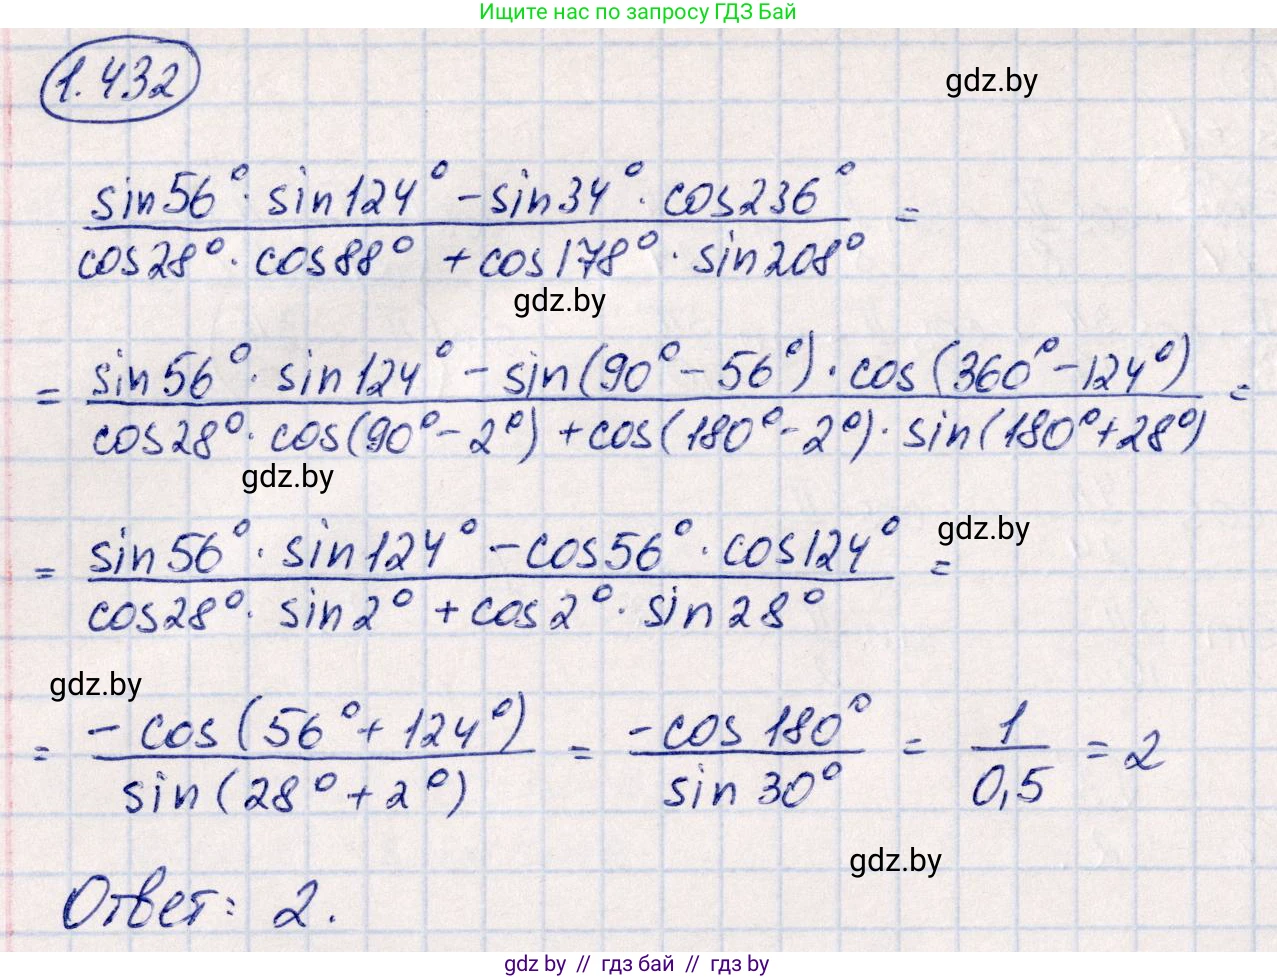 Ищите нас по запросу ГДЗ Бай
1.432
gdz.by
sin56°· sin124° - sin34°· cos236° =
cos28°· cos88° + cos178°· sin208°
gdz.by
= sin56°· sin124° - sin(90° - 56°)· cos(360° - 124°) =
cos28°· cos(90° - 2°) + cos(180° - 2°)· sin(180° + 28°)
gdz.by
gdz.by
= sin56°· sin124° - cos56°· cos124° =
cos28°· sin2° + cos2°· sin28°
gdz.by
= -cos(56° + 124°) = -cos180° = 1 = 2
sin(28° + 2°) sin30° 0,5
gdz.by
Ответ: 2.
gdz.by // гдз бай // гдз by